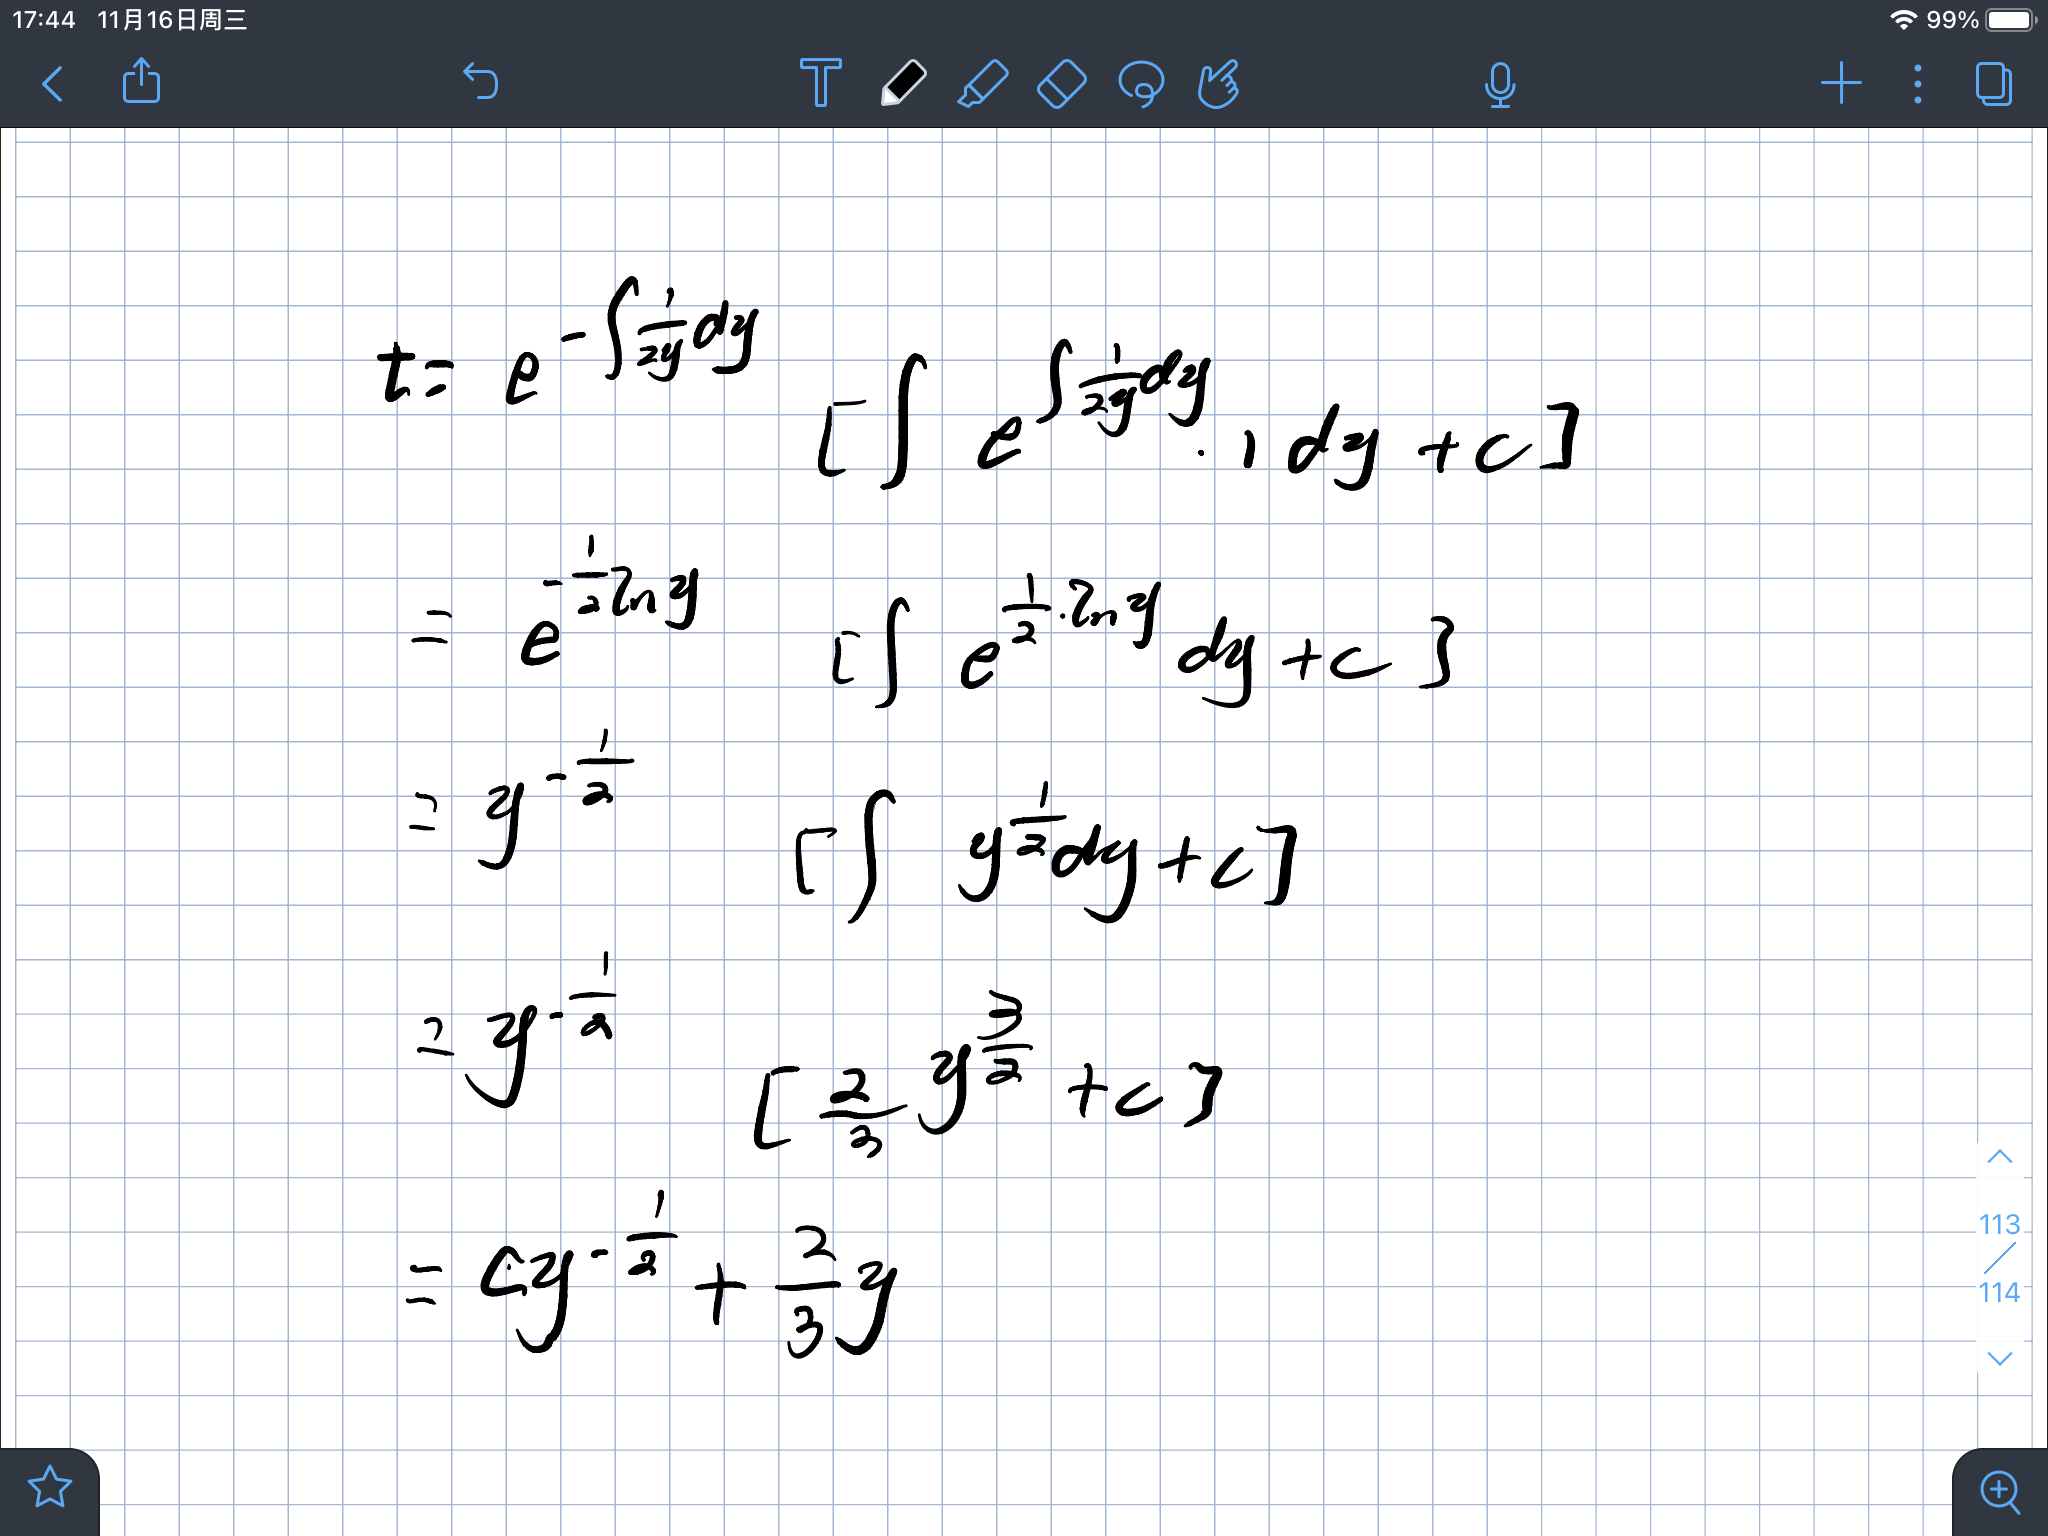 17:44 11月16日周三 99%
t = e^{-∫\frac{1}{2y}dy} [∫ e^{∫\frac{1}{2y}dy} · 1 dy + c]
= e^{-\frac{1}{2}ln y} [∫ e^{\frac{1}{2}·ln y} dy + c]
= y^{-\frac{1}{2}} [∫ y^{\frac{1}{2}} dy + c]
= y^{-\frac{1}{2}} [\frac{2}{3} y^{\frac{3}{2}} + c]
= cy^{-\frac{1}{2}} + \frac{2}{3} y
113
/
114